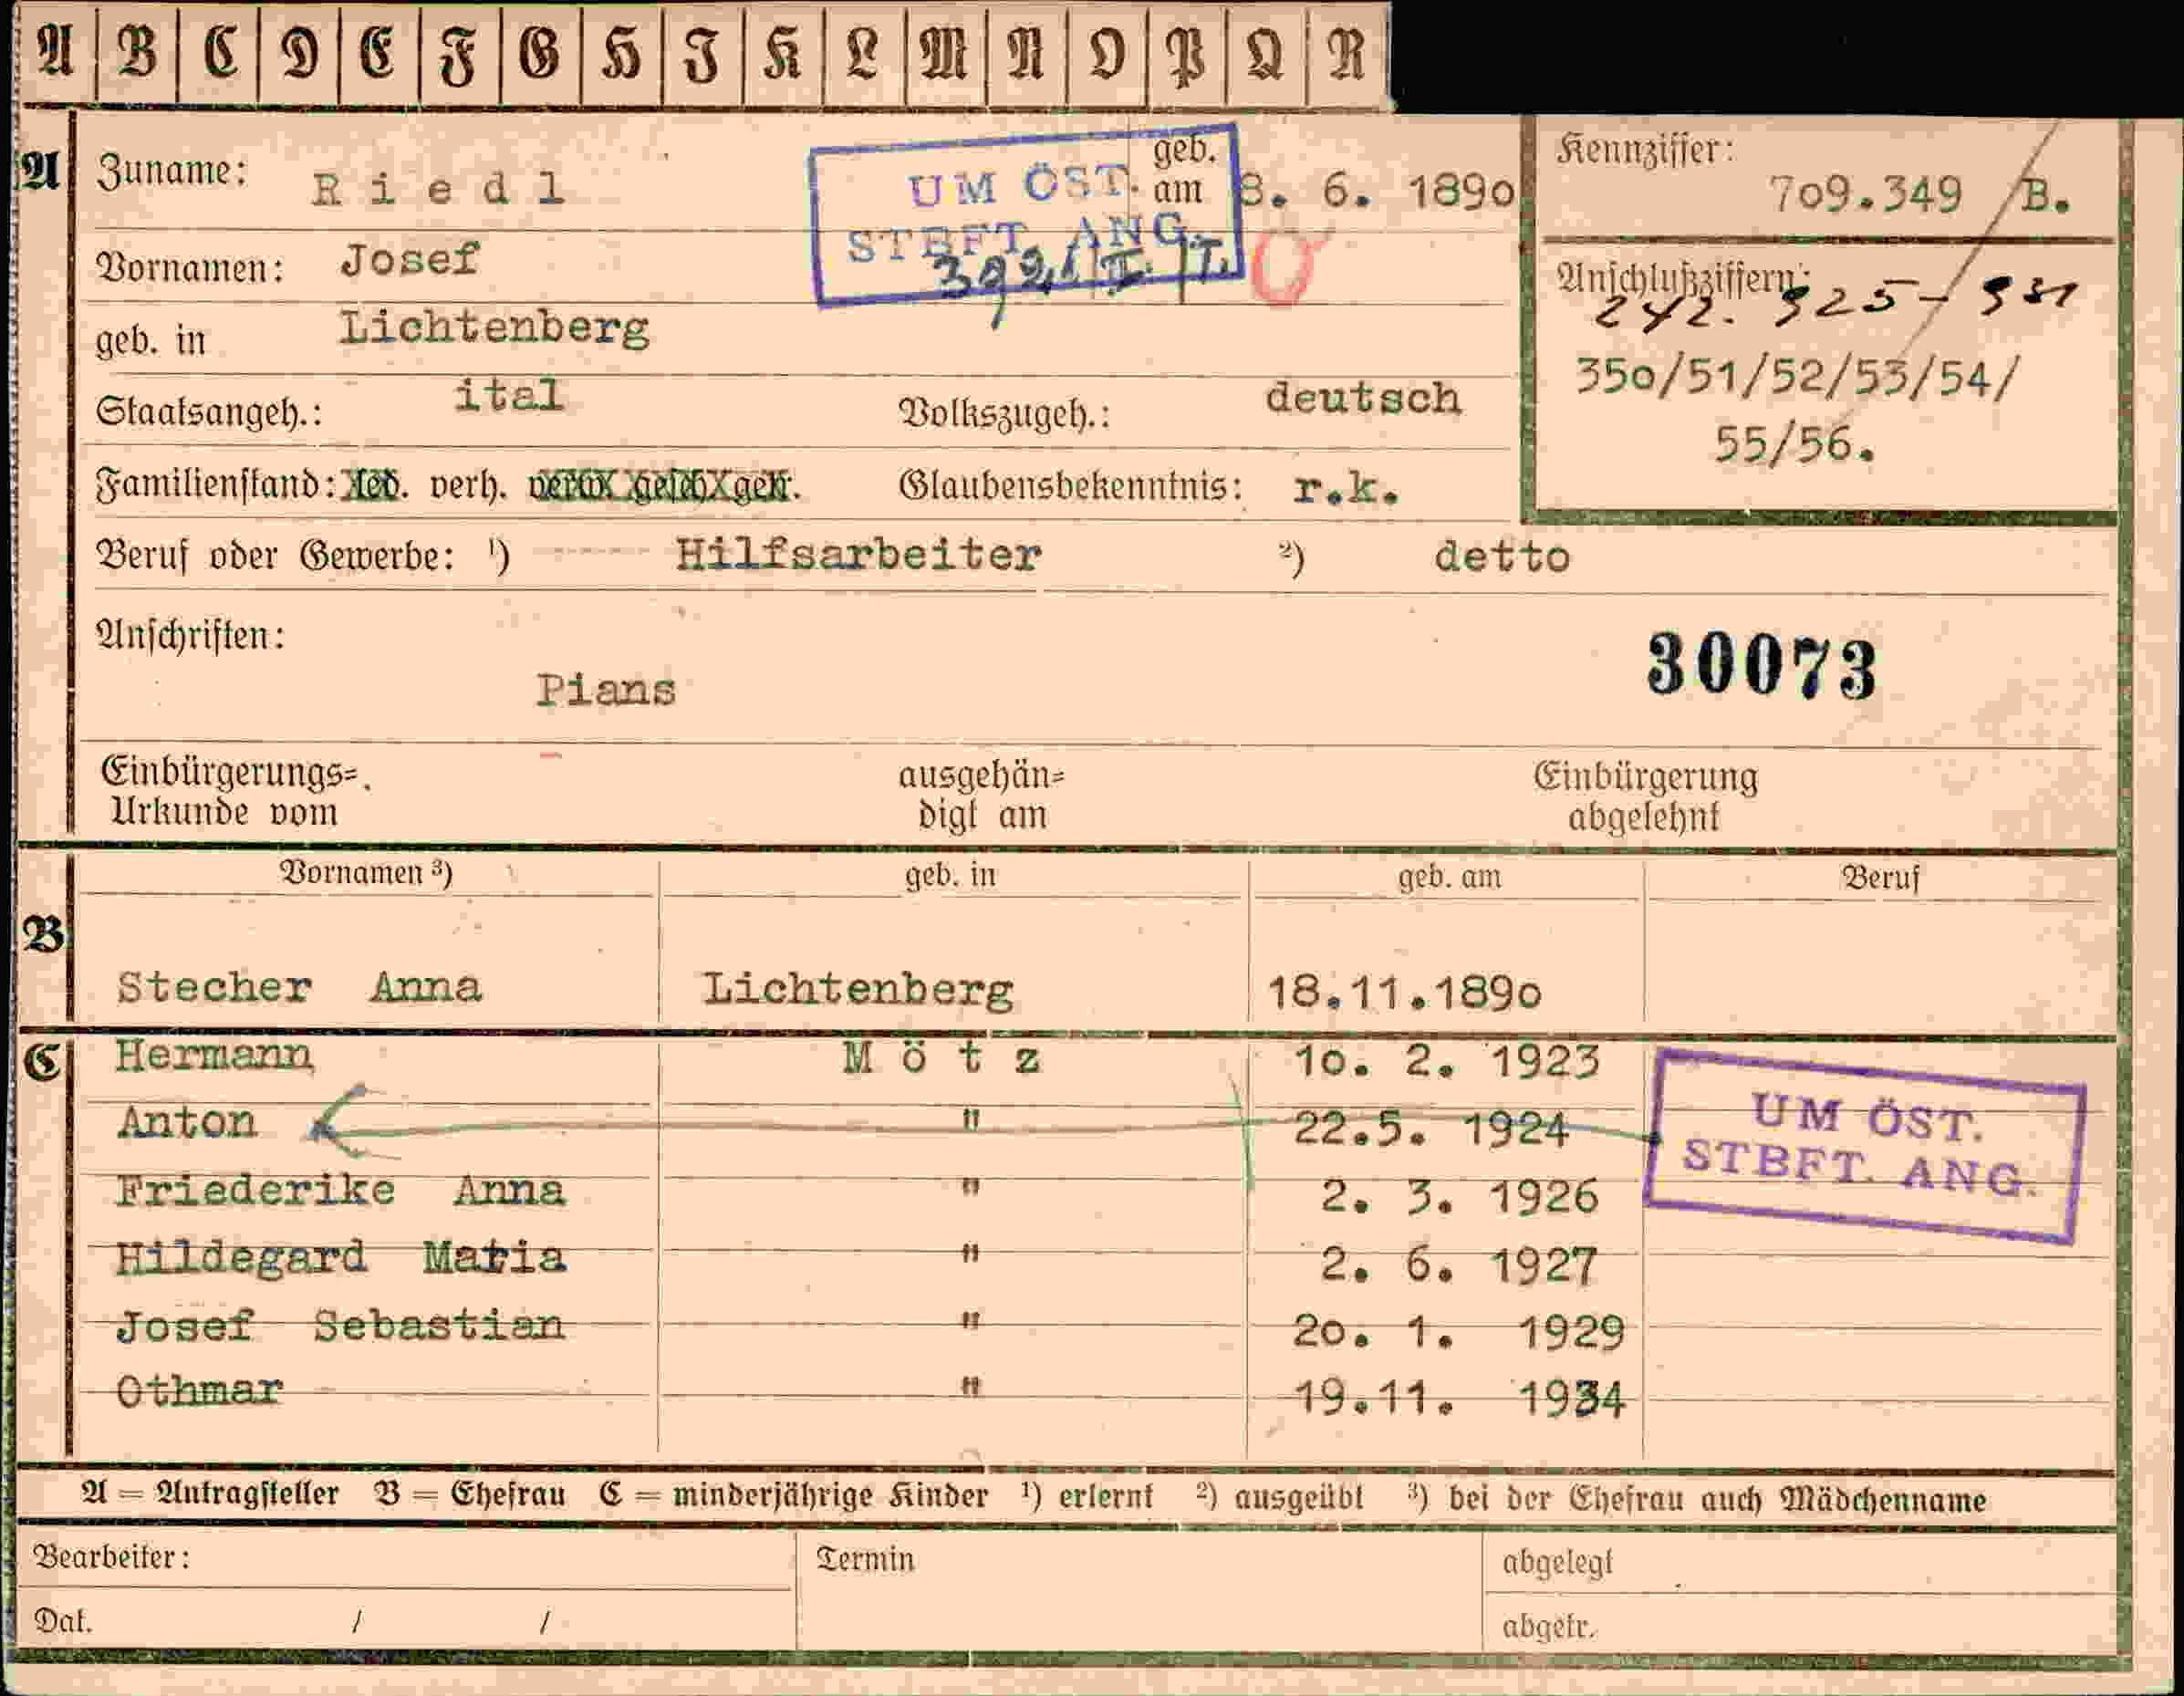 A B C D E F G H I K L M N O P Q R
A Zuname: Riedl geb. am 8. 6. 1890
UM ÖST.
STBFT. ANG.
Kennziffer:
709.349 /B.
Vornamen: Josef
Anschlußziffern:
242. 925-931
350/51/52/53/54/
55/56.
geb. in Lichtenberg
Staatsangeh.: ital Volkszugeh.: deutsch
Familienstand: led. verh. verw. gesch. getr. Glaubensbekenntnis: r.k.
Beruf oder Gewerbe: ¹) Hilfsarbeiter ²) detto
Anschriften:
30073
Pians
Einbürgerungs= ausgehän= Einbürgerung
Urkunde vom digt am abgelehnt
Vornamen ³) geb. in geb. am Beruf
B
Stecher Anna Lichtenberg 18.11.1890
C Hermann Mötz 10. 2. 1923
Anton " 22.5. 1924
UM ÖST.
STBFT. ANG.
Friederike Anna " 2. 3. 1926
Hildegard Maria " 2. 6. 1927
Josef Sebastian " 20. 1. 1929
Othmar " 19.11. 1934
A = Antragsteller B = Ehefrau C = minderjährige Kinder ¹) erlernt ²) ausgeübt ³) bei der Ehefrau auch Mädchenname
Bearbeiter: Termin abgelegt
Dat. / / abgetr.